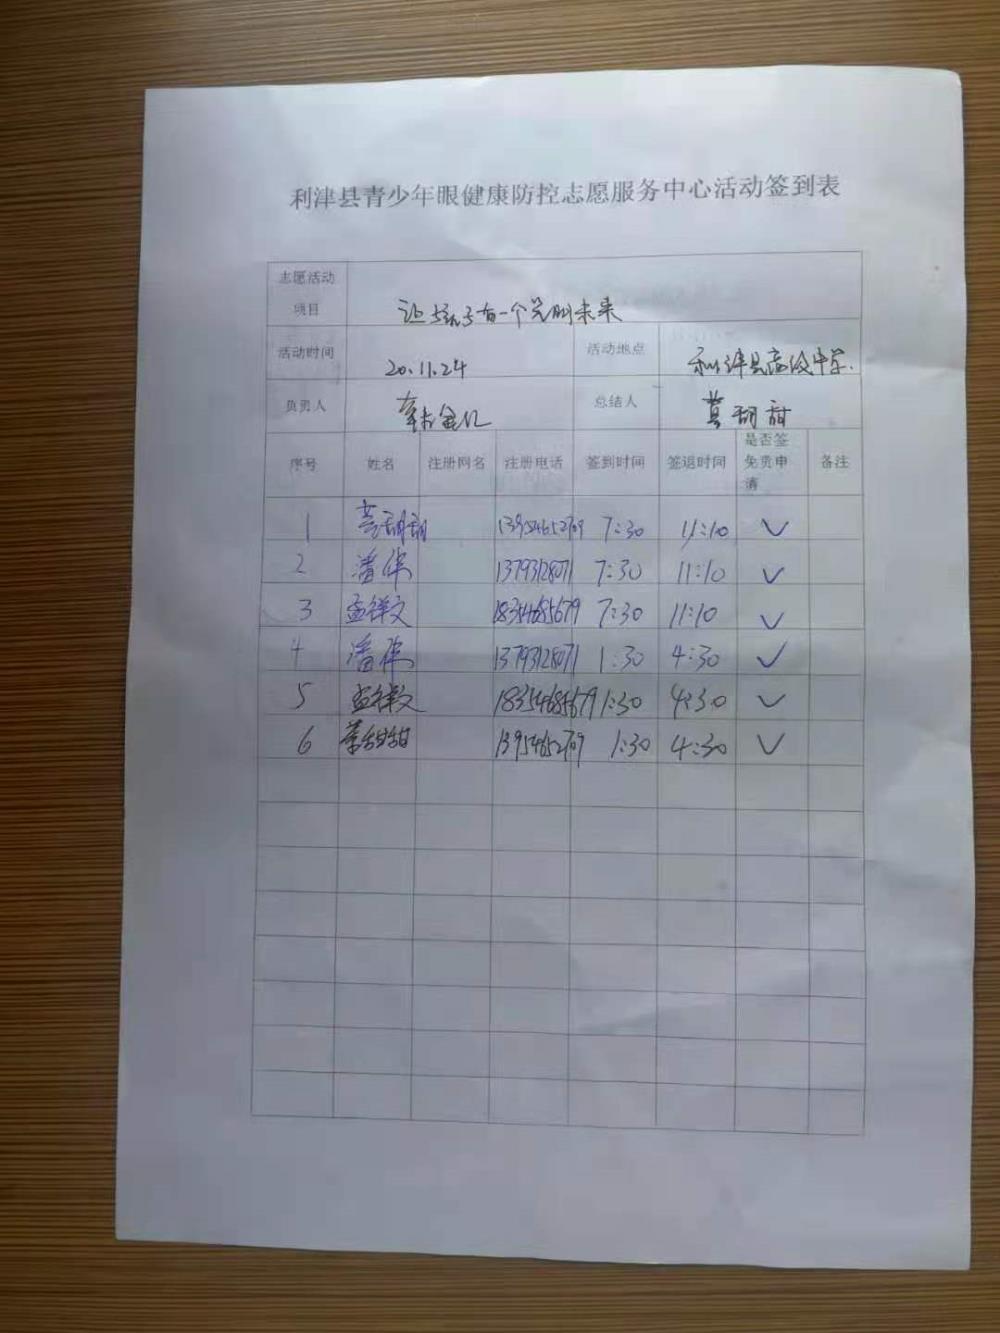 利津县青少年眼健康防控志愿服务中心活动签到表
志愿活动项目 让孩子有一个光明未来
活动时间 20.11.24 活动地点 利津县高级中学.
负责人 总结人
序号 姓名 注册网名 注册电话 签到时间 签退时间 是否签免责申请 备注
1 13954652709 7:30 11:10 ✓
2 潘伟 13793128071 7:30 11:10 ✓
3 孟祥文 18354685679 7:30 11:10 ✓
4 潘伟 13793128071 1:30 4:30 ✓
5 孟祥文 18354685679 1:30 4:30 ✓
6 13954652709 1:30 4:30 ✓